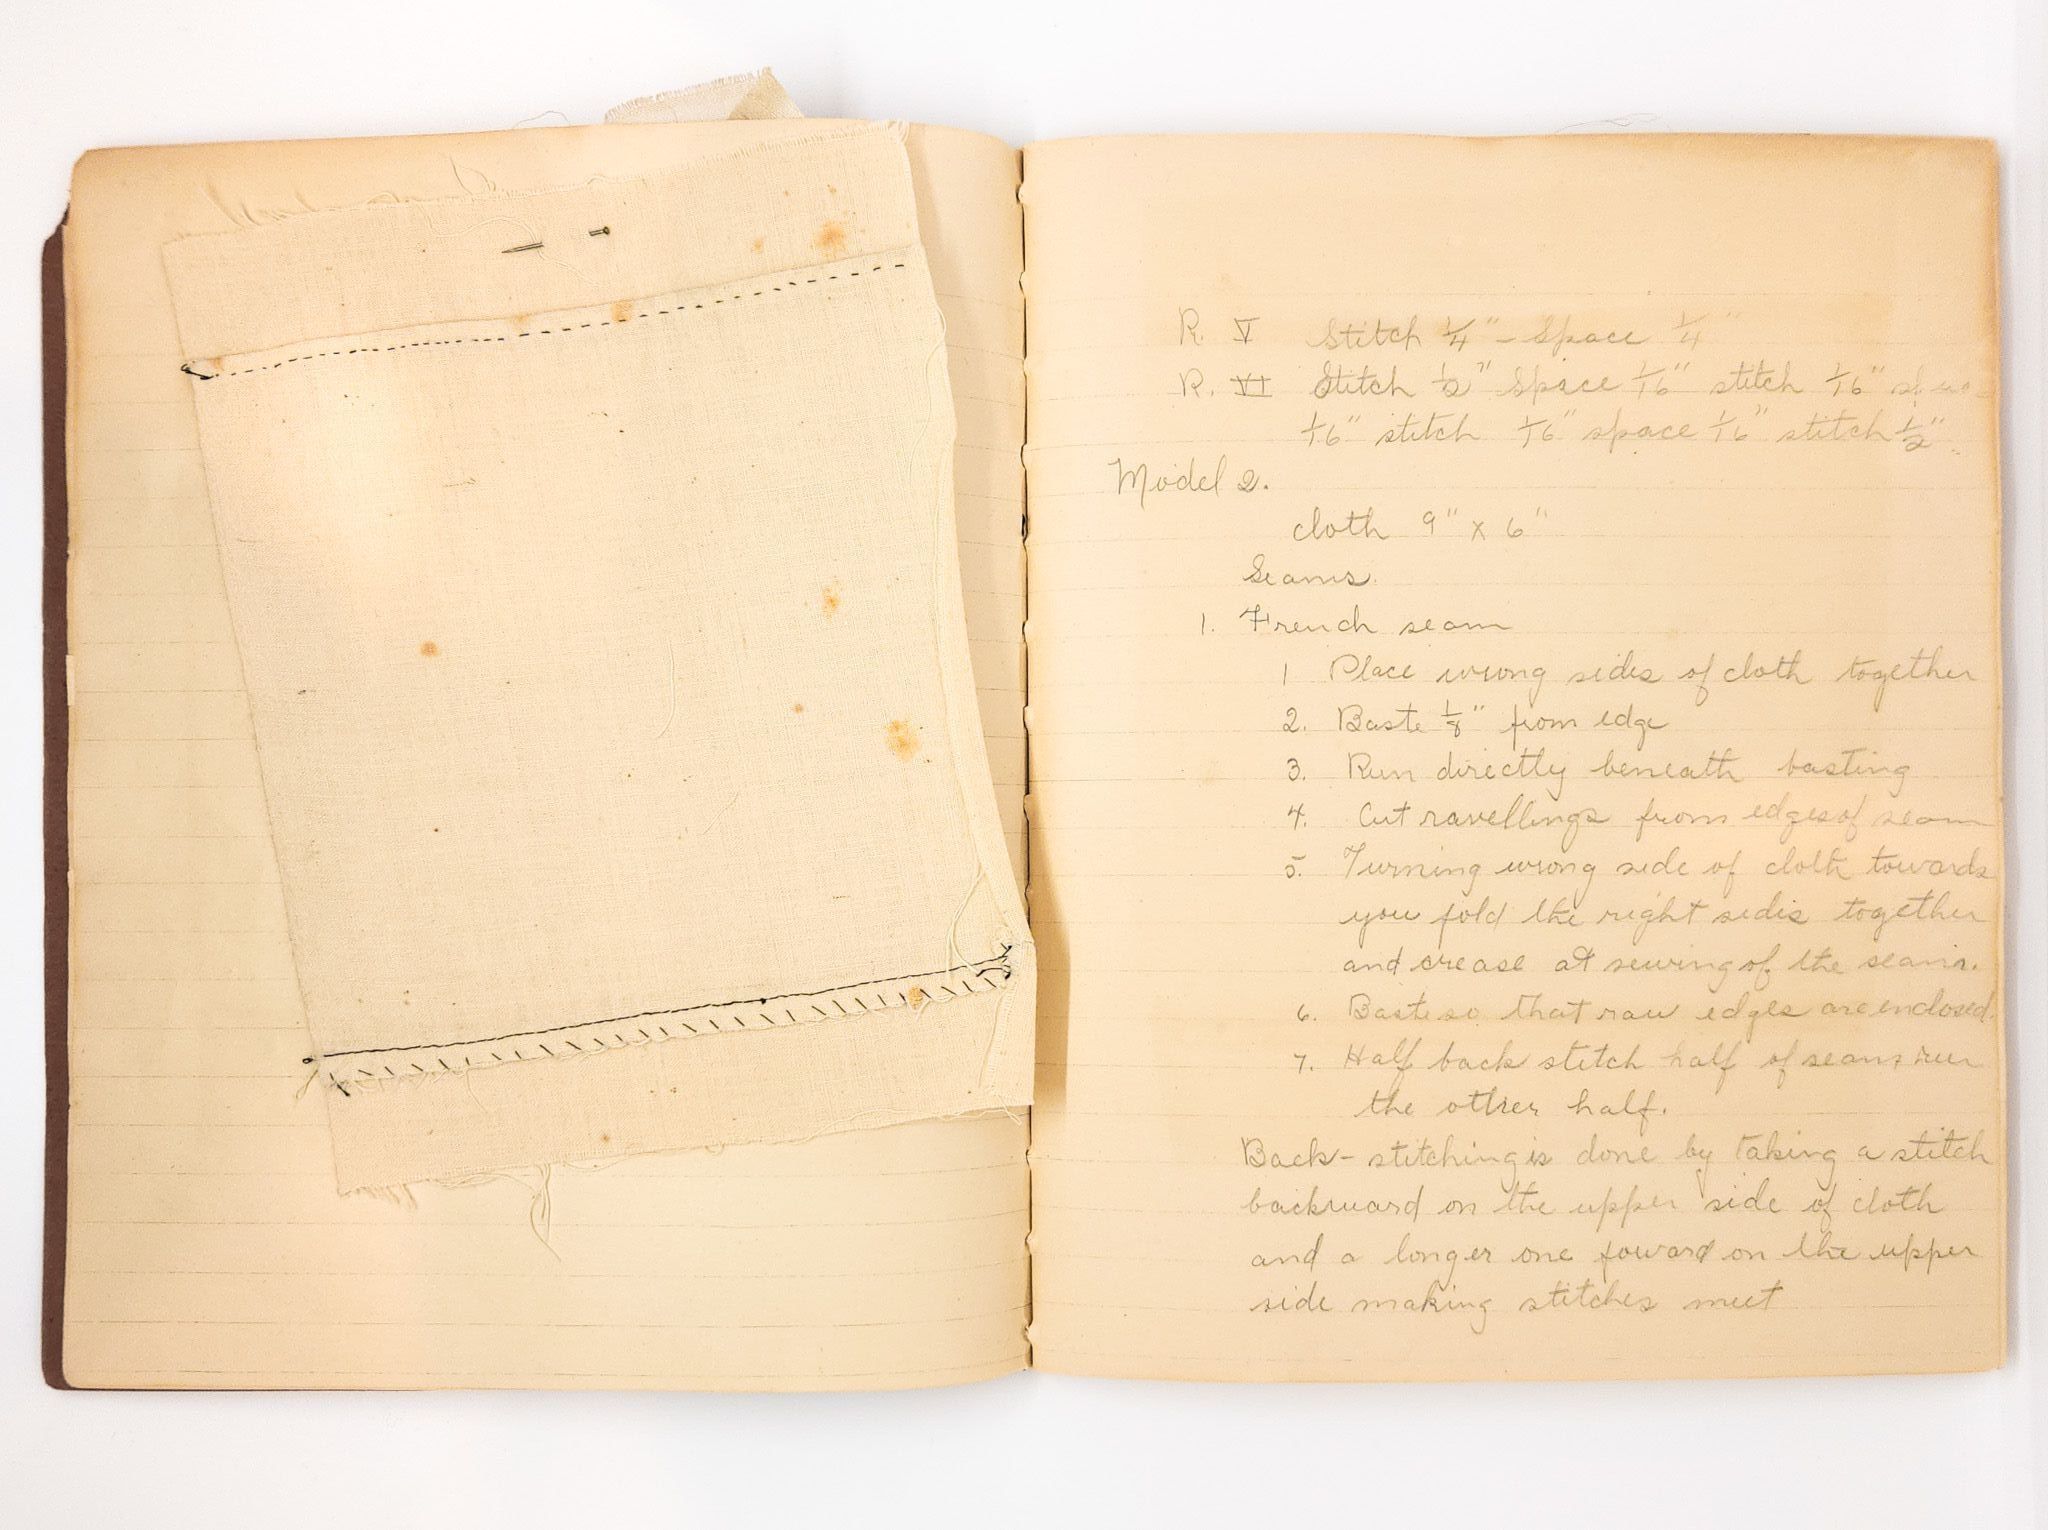 R. V Stitch 1/4" - Space 1/4"
R. VI Stitch 1/2" Space 1/16" stitch 1/16" space
1/16" stitch 1/16" space 1/16" stitch 1/2"
Model 2.
cloth 9" x 6"
Seams.
1. French seam
1 Place wrong sides of cloth together
2. Baste 1/8" from edge
3. Run directly beneath basting
4. Cut ravellings from edges of seam
5. Turning wrong side of cloth towards
you fold the right sides together
and crease at sewing of the seam.
6. Baste so that raw edges are enclosed.
7. Half back stitch half of seam, run
the other half.
Back-stitching is done by taking a stitch
backward on the upper side of cloth
and a longer one foward on the upper
side making stitches meet